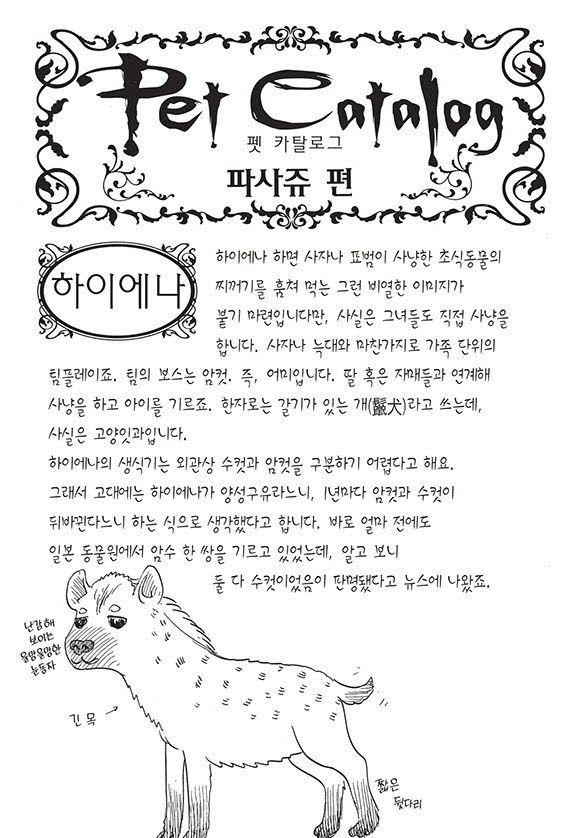 Pet Catalog
펫 카탈로그
파사쥬 편
하이에나
하이에나 하면 사자나 표범이 사냥한 초식동물의
찌꺼기를 훔쳐 먹는 그런 비열한 이미지가
붙기 마련입니다만, 사실은 그녀들도 직접 사냥을
합니다. 사자나 늑대와 마찬가지로 가족 단위의
팀플레이죠. 팀의 보스는 암컷. 즉, 어미입니다. 딸 혹은 자매들과 연계해
사냥을 하고 아이를 기르죠. 한자로는 갈기가 있는 개(鬣犬)라고 쓰는데,
사실은 고양잇과입니다.
하이에나의 생식기는 외관상 수컷과 암컷을 구분하기 어렵다고 해요.
그래서 고대에는 하이에나가 양성구유라느니, 1년마다 암컷과 수컷이
뒤바뀐다느니 하는 식으로 생각했다고 합니다. 바로 얼마 전에도
일본 동물원에서 암수 한 쌍을 기르고 있었는데, 알고 보니
둘 다 수컷이었음이 판명됐다고 뉴스에 나왔죠.
난감해
보이는
올망올망한
눈동자
긴 목
짧은
뒷다리